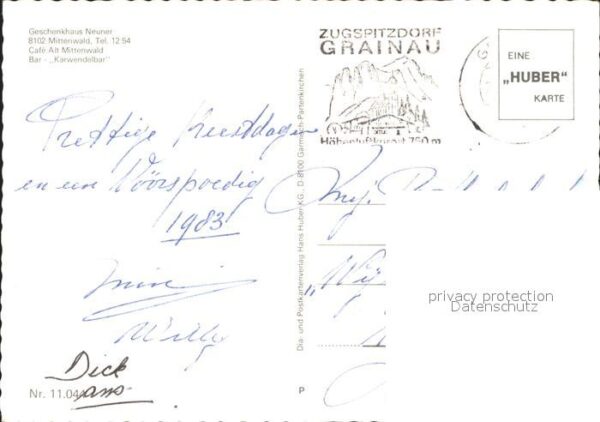 Geschenkhaus Neuner
8102 Mittenwald, Tel. 12 54
Café Alt Mittenwald
Bar - „Karwendelbar"
ZUGSPITZDORF
GRAINAU
Höhenluftkurort 750 m
EINE
„HUBER"
KARTE
Prettige Kerstdagen
en een Vóórspoedig
1983
Willy
Dick
ans
Nr. 11.04
Dia- und Postkartenverlag Hans Huber KG., D 8100 Garmisch-Partenkirchen
P
privacy protection
Datenschutz